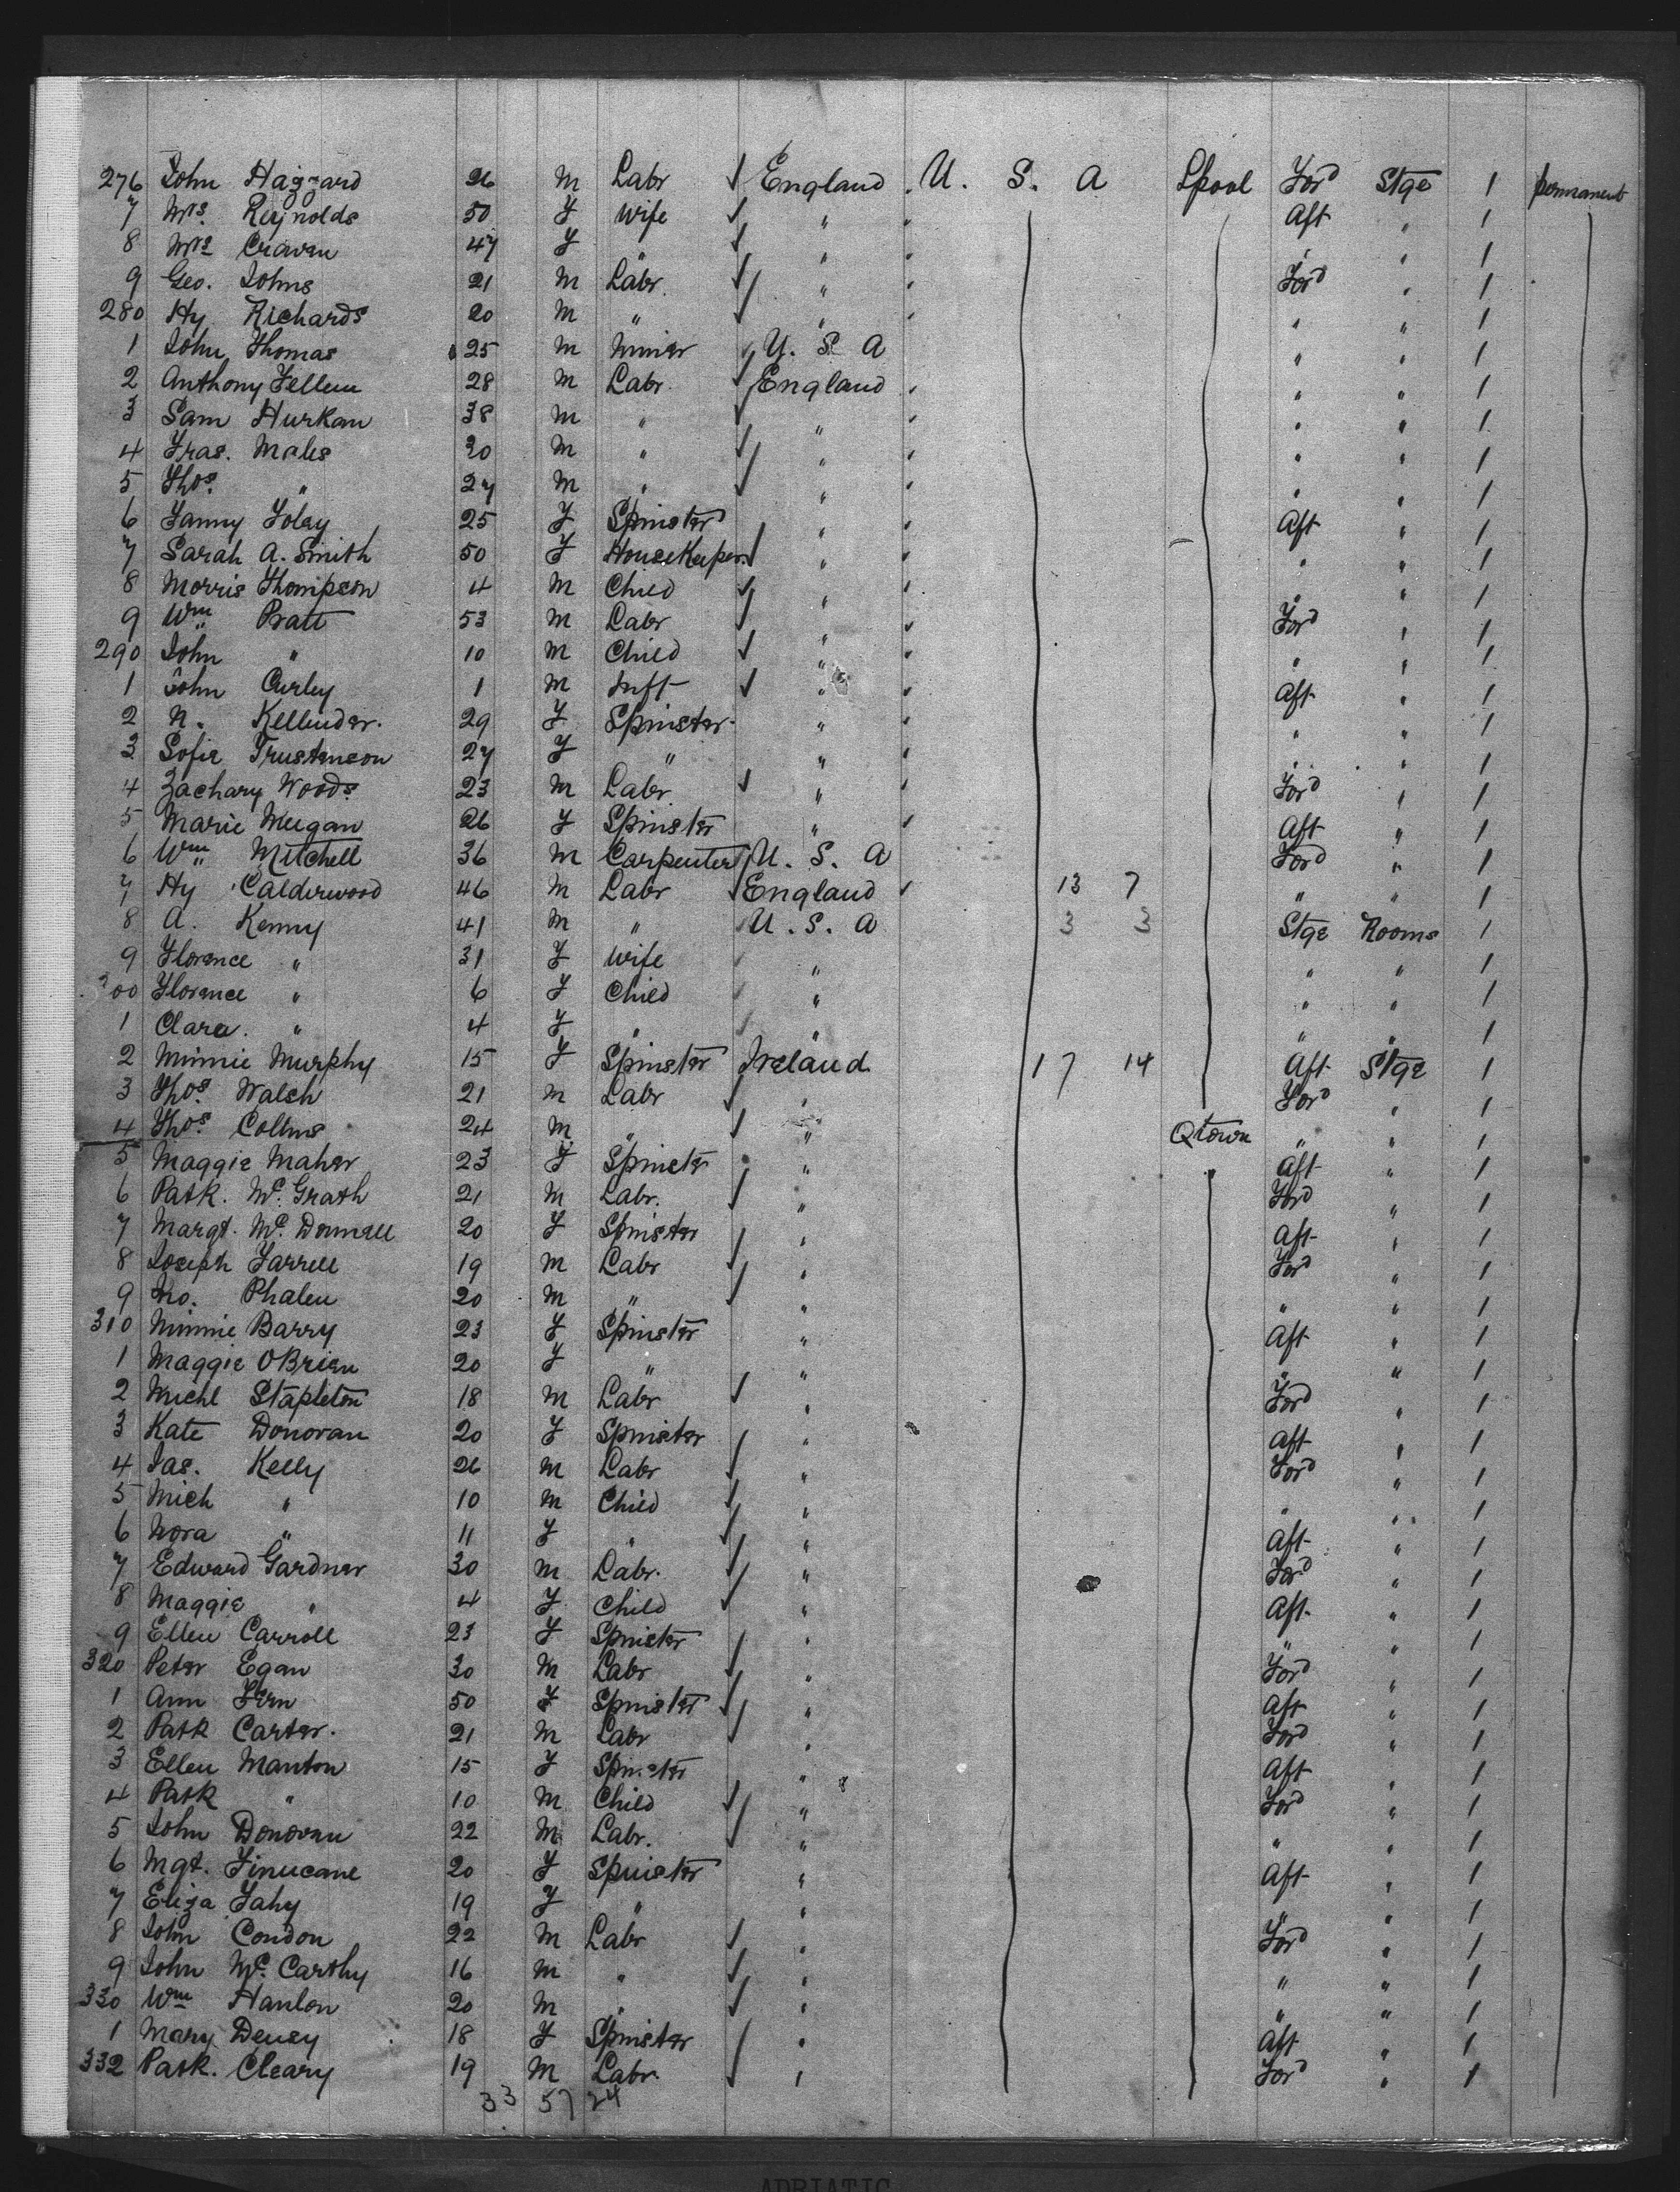 276 John Haggard 26 M Labr England U. S. A Lpool Ford Stge 1 permanent
7 Mrs. Reynolds 50 F Wife " Aft " 1
8 Mrs Craven 47 F " " " " 1
9 Geo. Johns 21 M Labr. " Ford " 1
280 Hy Richards 20 M " " " " 1
1 John Thomas 25 M Miner U. S. A " " 1
2 Anthony 28 M Labr. England " " 1
3 Sam Hurkan 38 M " " " " 1
4 Fras. Males 30 M " " " " 1
5 Thos. " 27 M " " " " 1
6 Fanny Foley 25 F Spinster " Aft " 1
7 Sarah A. Smith 50 F HouseKeeper " " " 1
8 Morris Thompson 4 M Child " " " 1
9 Wm Pratt 53 M Labr " Ford " 1
290 John " 10 M Child " " " 1
1 John Curley 1 M Inft " Aft " 1
2 N. Kellender. 29 F Spinster " " " 1
3 Sofie Trustenson 27 F " " " " 1
4 Zachary Woods 23 M Labr. " Ford " 1
5 Marie Meegan 26 F Spinster " Aft " 1
6 Wm Mitchell 36 M Carpenter U. S. A Ford " 1
7 Hy Calderwood 46 M Labr England 13 7 " " 1
8 A. Kenny 41 M " U. S. A 3 3 Stge Rooms 1
9 Florence " 31 F Wife " " " 1
300 Florence " 6 F Child " " " 1
1 Clara. " 4 F " " " " 1
2 Minnie Murphy 15 F Spinster Ireland 17 14 Aft Stge 1
3 Thos. Walsh 21 M Labr " Ford " 1
4 Thos. Collins 24 M " " Qtown " " 1
5 Maggie Maher 23 F Spinster " " Aft " 1
6 Patk. Mc. Grath 21 M Labr. " Ford " 1
7 Margt. Mc. Donnell 20 F Spinster " Aft " 1
8 Joseph Farrell 19 M Labr " Ford " 1
9 Jno. Phalen 20 M " " " " 1
310 Minnie Barry 23 F Spinster " Aft " 1
1 Maggie OBrien 20 F " " " " 1
2 Michl Stapleton 18 M Labr " Ford " 1
3 Kate Donovan 20 F Spinster " Aft " 1
4 Jas. Kelly 26 M Labr " Ford " 1
5 Mich " 10 M Child " " " 1
6 Nora " 11 F " " Aft " 1
7 Edward Gardner 30 M Labr. " Ford " 1
8 Maggie " 4 F Child " Aft " 1
9 Ellen Carroll 23 F Spinster " " " 1
320 Peter Egan 30 M Labr " Ford " 1
1 Ann Fern 50 F Spinster " Aft " 1
2 Patk Carter. 21 M Labr " Ford " 1
3 Ellen Manton 15 F Spinster " Aft " 1
4 Patk " 10 M Child " Ford " 1
5 John Donovan 22 M Labr. " " " 1
6 Mgt. Finucane 20 F Spinster " Aft " 1
7 Eliza Fahy 19 F " " " " 1
8 John Condon 22 M Labr " Ford " 1
9 John Mc. Carthy 16 M " " " " 1
330 Wm Hanlon 20 M " " " " 1
1 Mary Deucy 18 F Spinster " Aft " 1
332 Patk. Cleary 19 M Labr. " Ford " 1
33 57 24
ADRIATIC